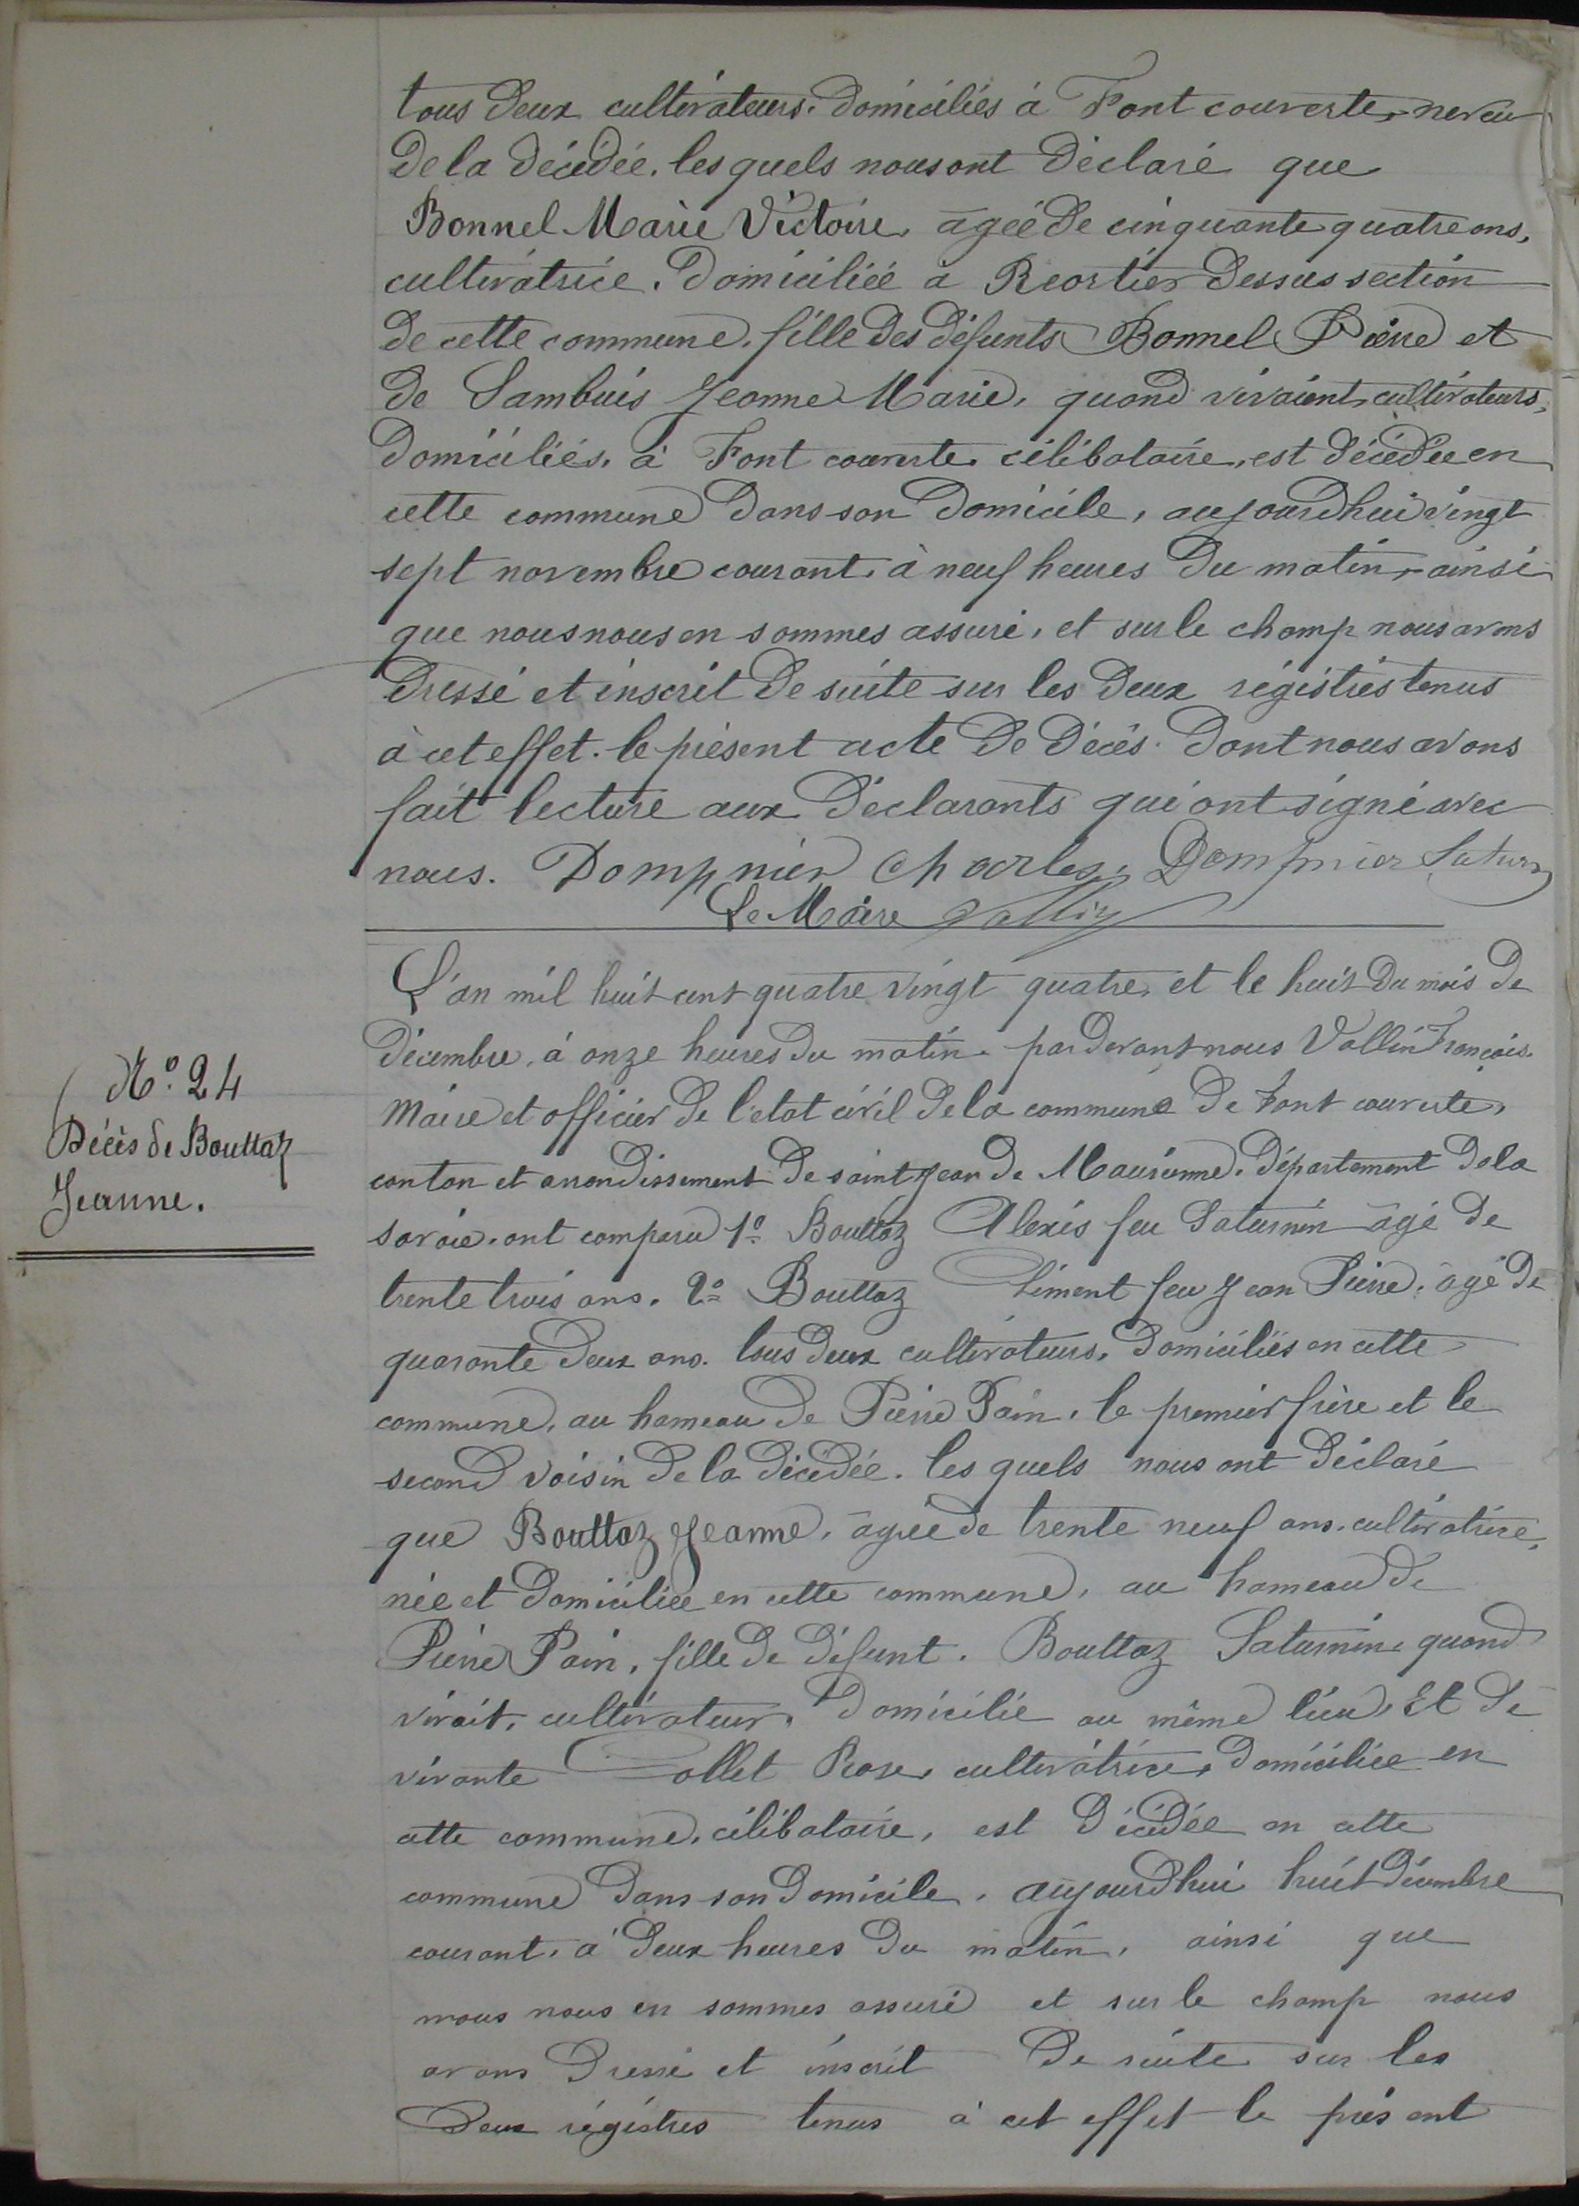 tous deux cultivateurs. domiciliés à Font couverte, neveu
de la décédée. les quels nous ont déclaré que
Bonnel Marie Victoire, agée de cinquante quatre ans,
cultivatrice. domiciliée à Reortier dessus section
de cette commune. fille des défunts Bonnel Pierre et
de Sambuis Jeanne Marie, quand vivaient, cultivateurs,
domiciliés, à Font couverte célibataire, est décédée en
cette commune dans son domicile, aujourdhui vingt
sept novembre courant, à neuf heures du matin, ainsi
que nous nous en sommes assuré, et sur le champ nous avons
dressé et inscrit de suite sur les deux régistres tenus
à cet effet. le présent acte de décès. dont nous avons
fait lecture aux déclarants qui ont signé avec
nous. Dompnier Charles. Dompnier Saturn
Le Maire Vallin
L'an mil huit cent quatre vingt quatre, et le huit du mois de
décembre, à onze heures du matin. par devant nous Vallin François.
Maire et officier de l'etat civil de la commune de Font couverte,
canton et arrondissement de saint Jean de Maurienne. département de la
savoie. ont comparu 1º Bouttaz Alexis feu Saturnin âgé de
trente trois ans. 2º Bouttaz Climent feu Jean Pierre, âgé de
quarante deux ans. tous deux cultivateurs, domiciliés en cette
commune, au hameau de Pierre Pain, le premier frère et le
second voisin de la décédée. les quels nous ont déclaré
que Bouttaz Jeanne, âgée de trente neuf ans. cultivatrice,
née et domiciliée en cette commune, au hameau de
Pierre Pain, fille de défunt. Bouttaz Saturnin quand
vivait, cultivateur, domicilié au même lieu, Et de
vivante Collet Rose, cultivatrice, domiciliée en
cette commune, célibataire, est décédée en cette
commune dans son domicile, aujourdhui huit décembre
courant, à deux heures du matin, ainsi que
nous nous en sommes assuré et sur le champ nous
avons dressé et inscrit de suite sur les
deux régistres tenus à cet effet le présent
Nº. 24
Décès de Bouttaz
Jeanne.